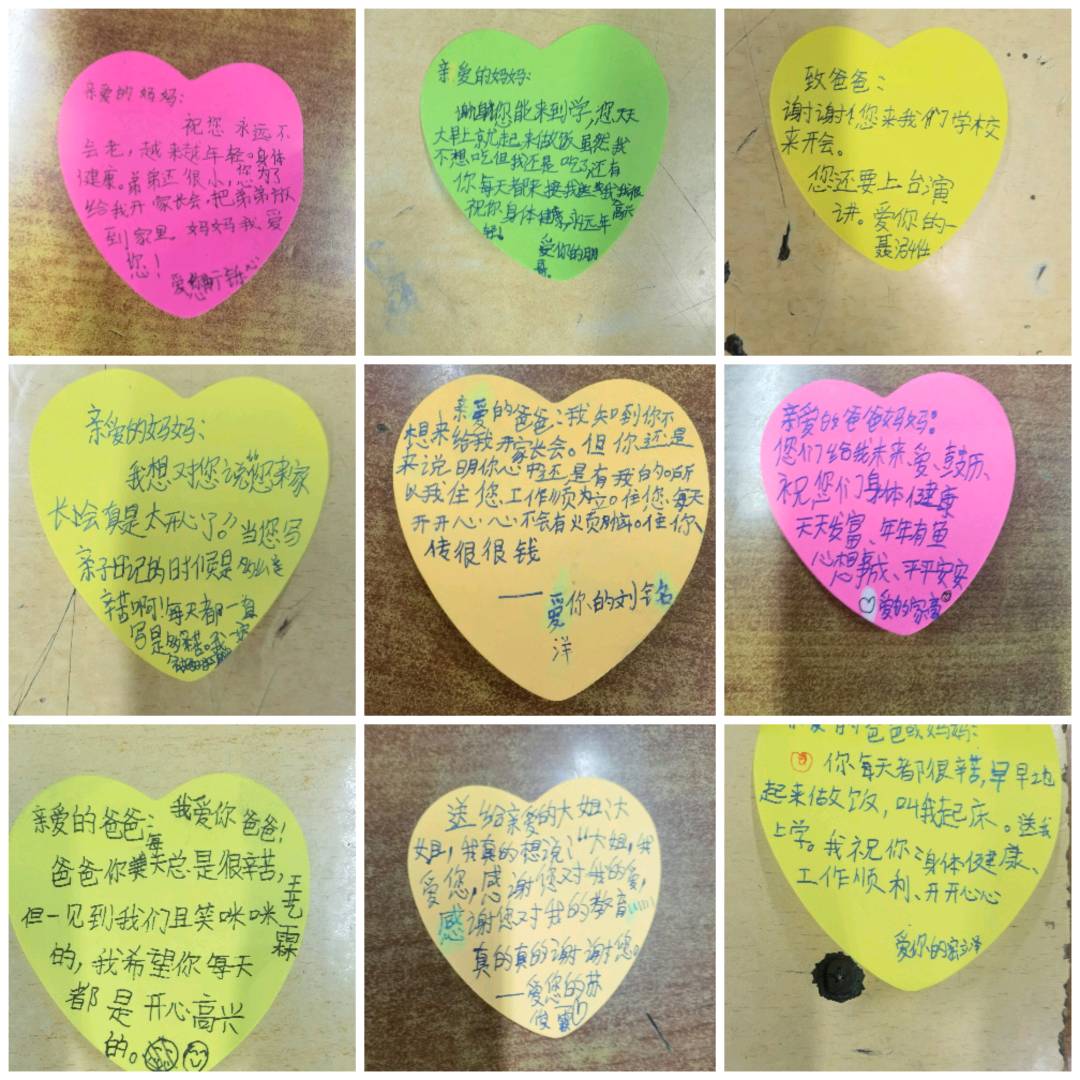 亲爱的妈妈:
祝您永远不
会老,越来越年轻。身体
健康。弟弟还很小,您为了
给我开家长会,把弟弟放
到家里 妈妈我爱
您!
亲爱的妈妈:
谢谢你能来到学,您天天
大早上就起来做饭虽然我
不想吃但我还是吃了还有
你每天都来接我
祝你身体健康,永远年
轻!
爱你的朋
致爸爸:
谢谢您来我们学校
来开会。
您还要上台演
讲。爱你的一
亲爱的妈妈:
我想对您说您来家
长会真是太开心了。当您写
亲子日记的时候是多么
辛苦啊!每天都
亲爱的爸爸:我知到你不
想来给我开家长会。但你还是
来说明你心里还是有我的。所
以我住您工作顺为立。住您每天
开开心心不会有火烦恼。住你
传很很钱
——爱你的刘铭
洋
亲爱的爸爸妈妈:
您们给我未来、爱、鼓历、
祝您们身体健康
天天发富、年年有鱼
心想事成、平平安安
爱的家高
亲爱的爸爸: 我爱你爸爸!
爸爸你每天总是很辛苦,
但一见到我们且笑咪咪
的,我希望你每天
都是开心高兴
的。
王艺霖
送给亲爱的大姐:大
姐,我真的想说:“大姐,我
爱您,感谢您对我的爱,
感谢您对我的教育
真的真的谢谢您。
——爱您的苏
爱的爸爸或妈妈:
你每天都很辛苦,早早地
起来做饭,叫我起床。送我
上学。我祝你:身体健康、
工作顺利、开开心心
爱你的